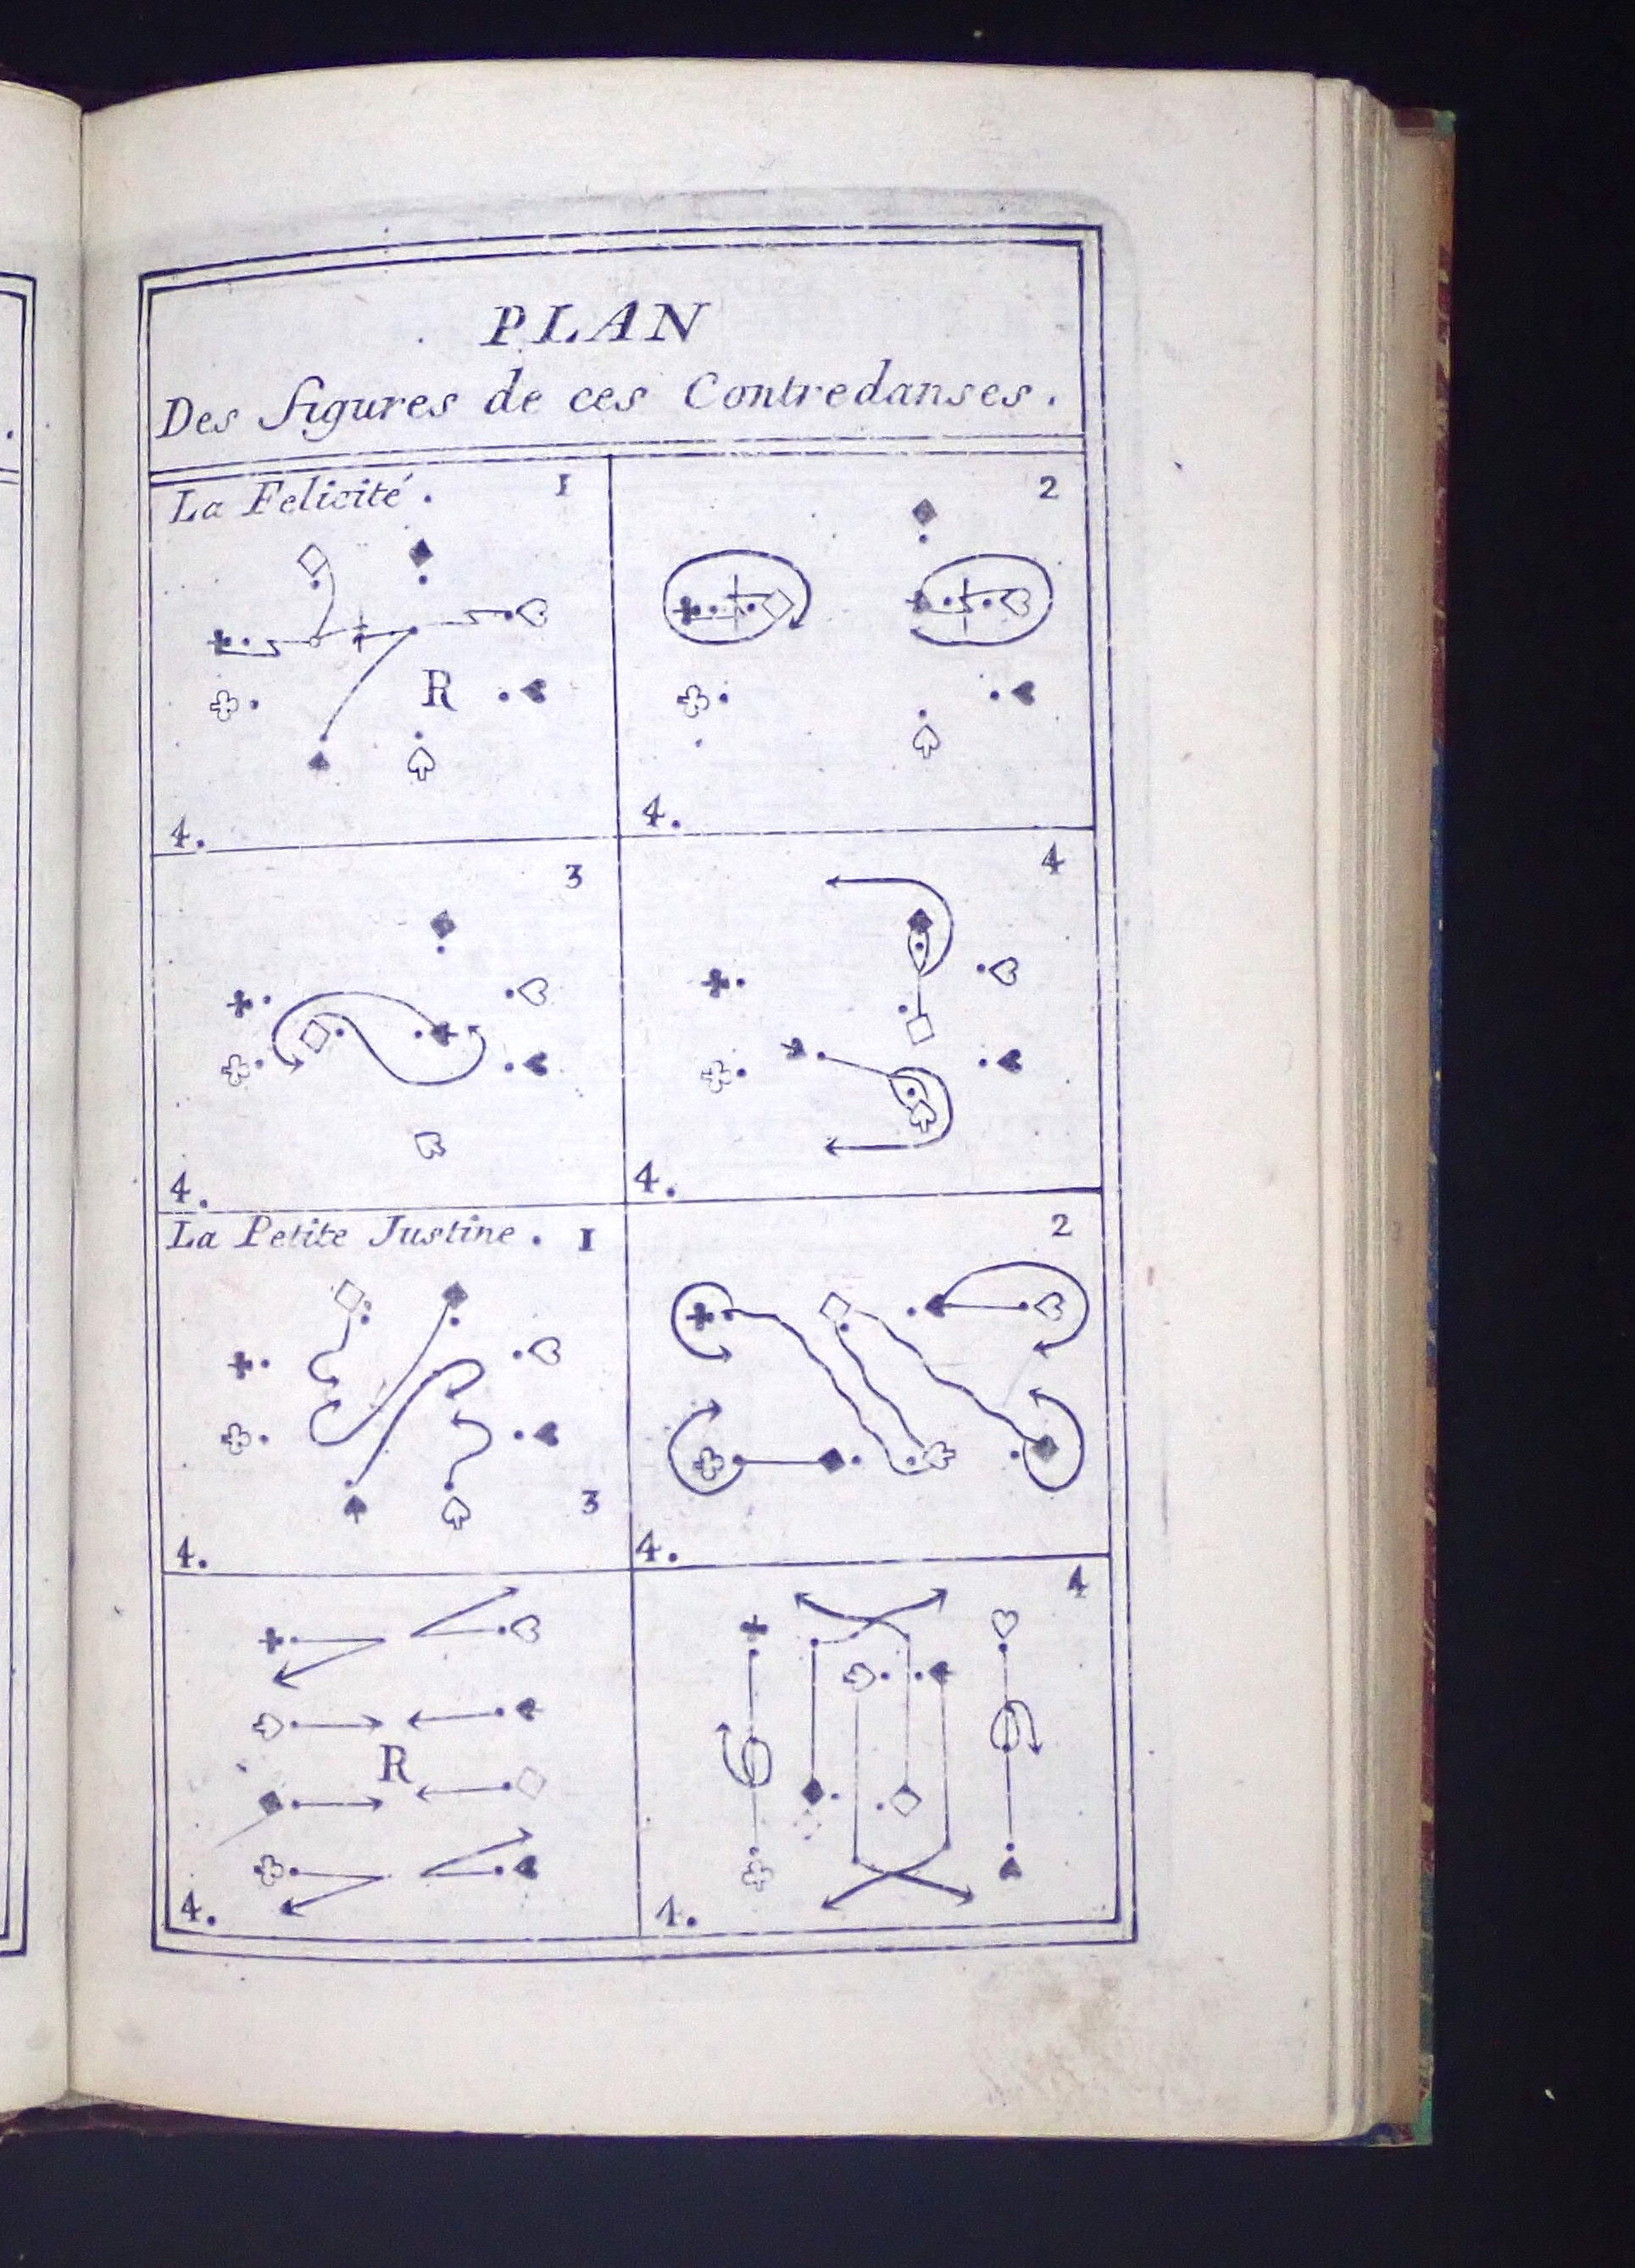 PLAN
Des figures de ces Contredanses.
La Felicité. 1
R
4.
2
4.
3
4.
4
4.
La Petite Justine. 1
4.
2
4.
3
R
4.
4
4.